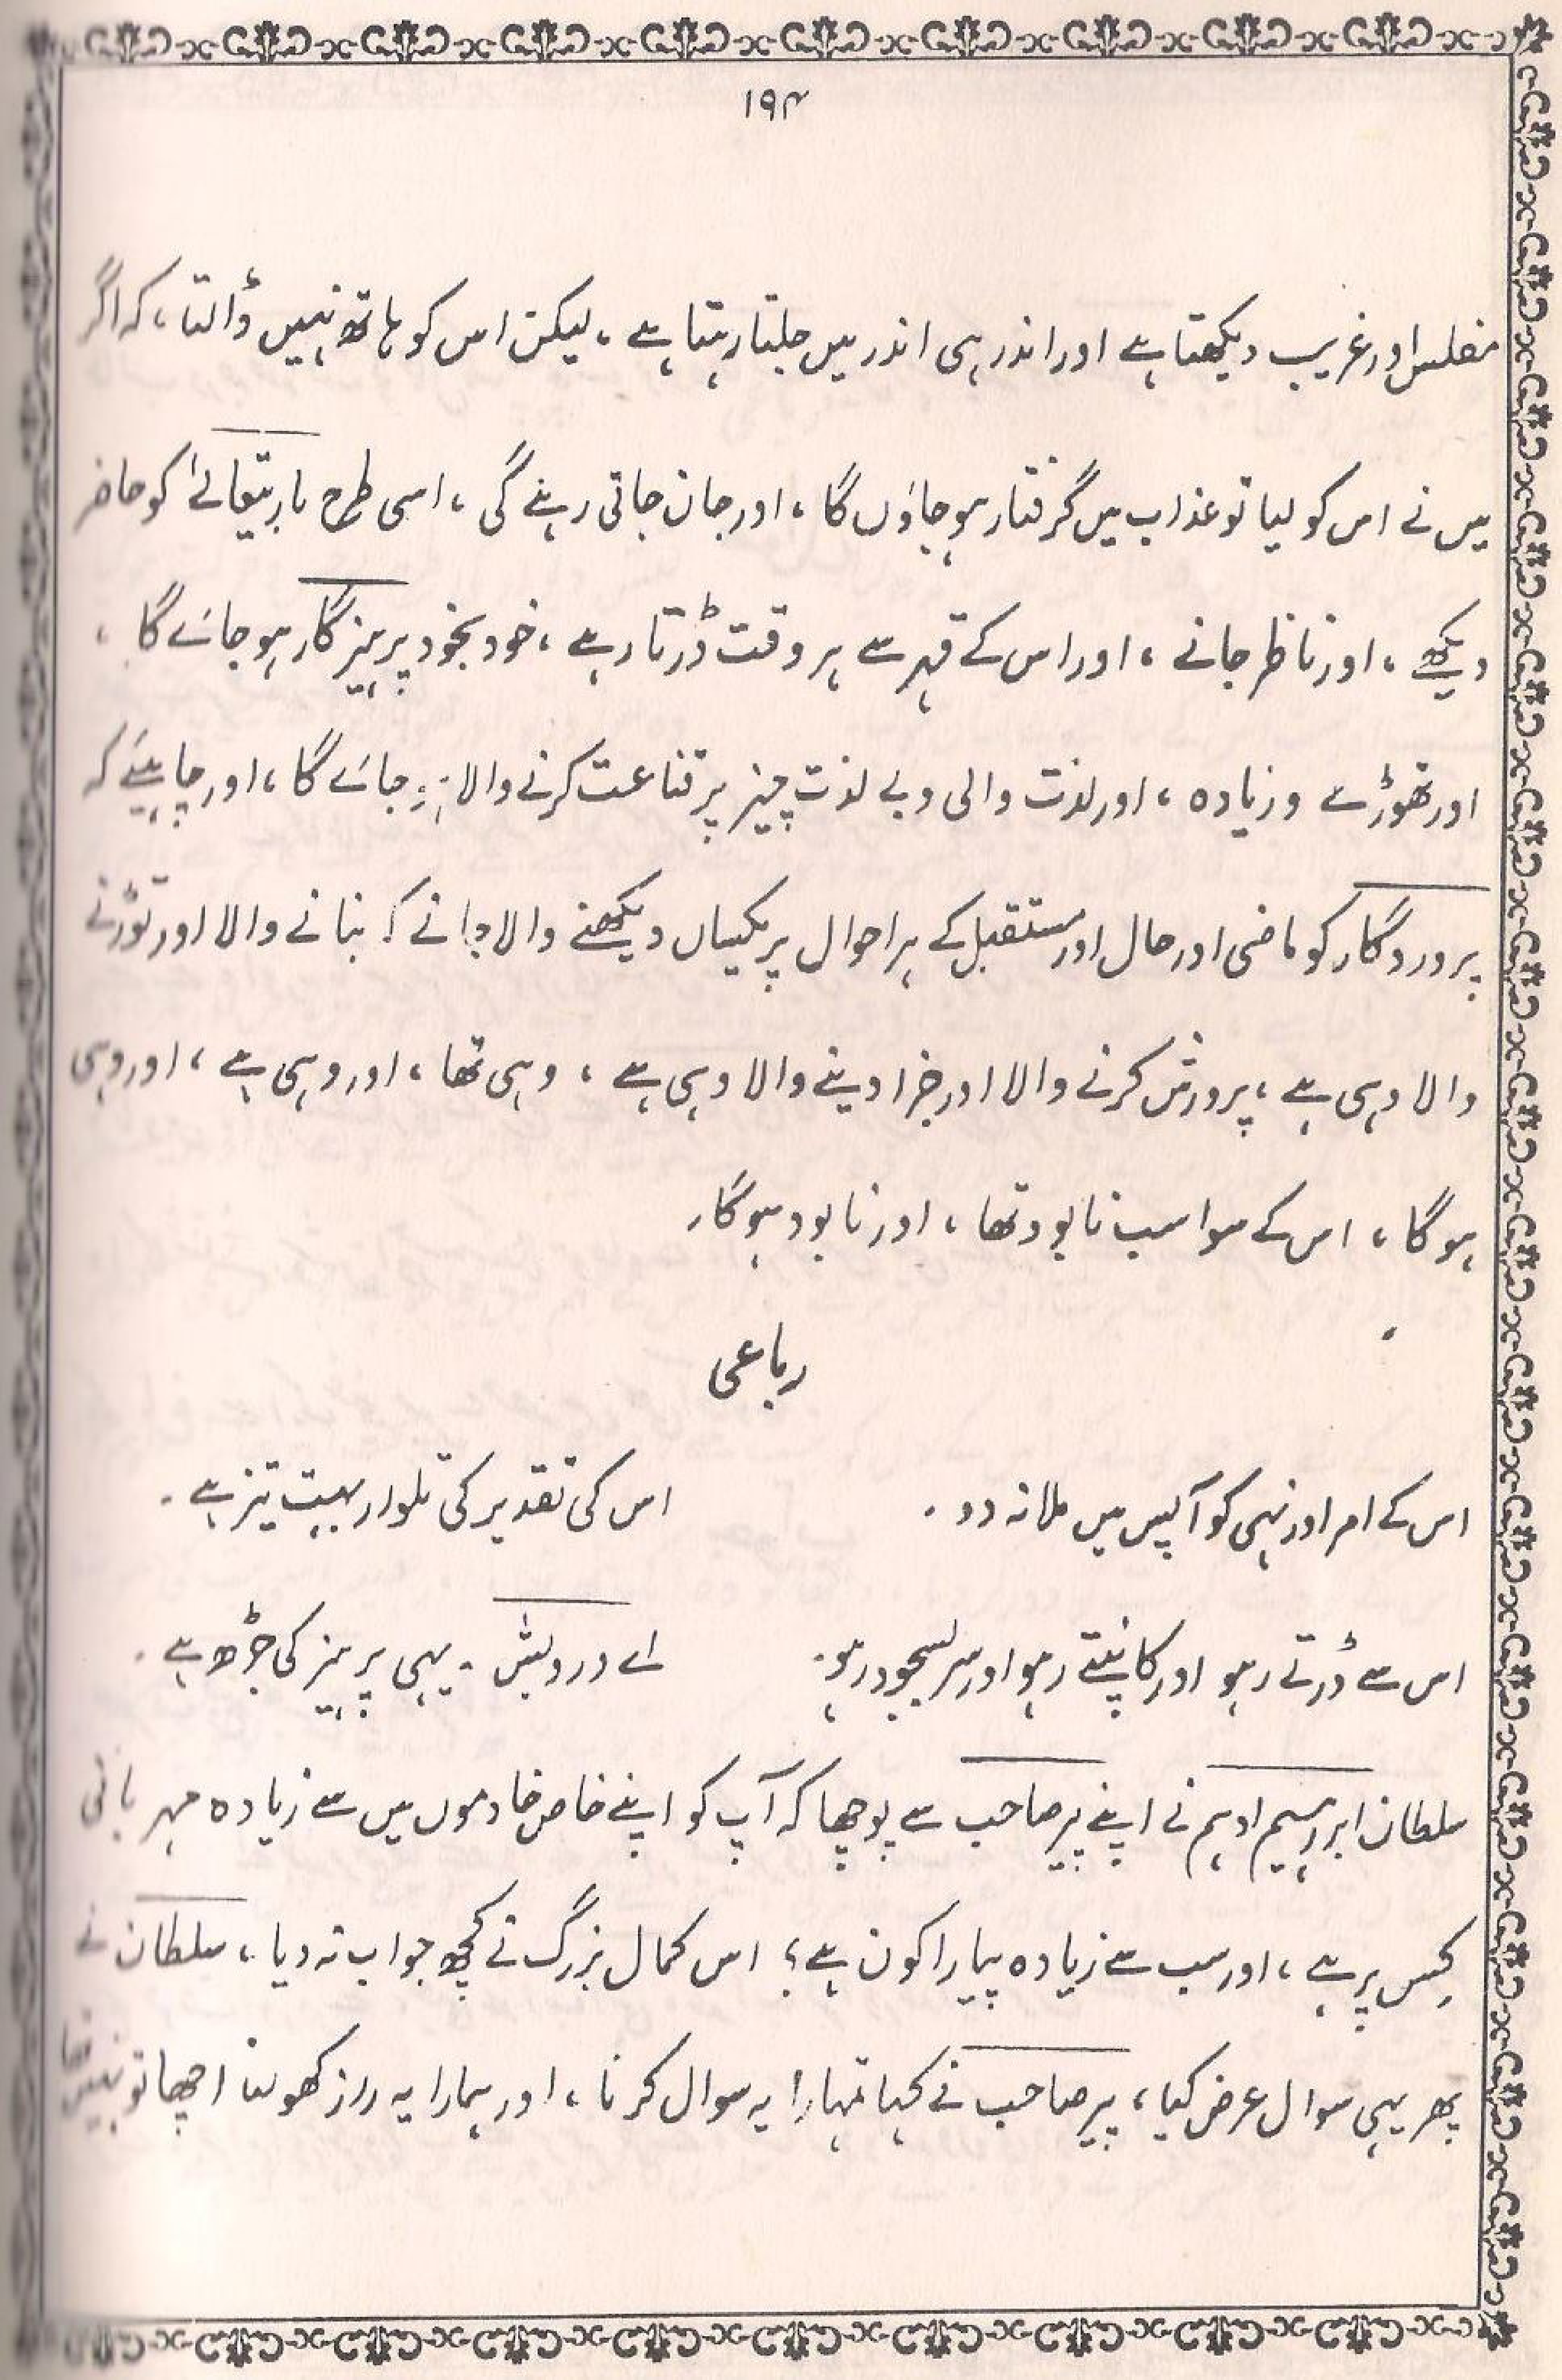 ۱۹۴
مفلس اور غریب دیکھتا ہے اور اندر ہی اندر میں جلتا رہتا ہے ، لیکن اس کو ہاتھ نہیں ڈالتا ، کہ اگر
میں نے اس کو لیا تو عذاب میں گرفتار ہو جاؤں گا ، اور جان جاتی رہنے گی ، اسی طرح باریتعالےٰ کو حاضر
دیکھے ، اور ناظر جانے ، اور اس کے قہر سے ہر وقت ڈرتا رہے ، خود بخود پرہیز گار ہو جائے گا ،
اور تھوڑے و زیادہ ، اور لذت والی و بے لذت چیز پر قناعت کرنے والا جائے گا ، اور چاہیئے کہ
پروردگار کو ماضی اور حال اور مستقبل کے ہر احوال پر یکساں دیکھنے والا جانے کہ بنانے والا اور توڑنے
والا وہی ہے ، پرورش کرنے والا اور جزا دینے والا وہی ہے ، وہی تھا ، اور وہی ہے ، اور وہی
ہو گا ، اس کے سوا سب نابود تھا ، اور نابود ہو گا ر
رباعی
اس کے امر اور نہی کو آپس میں ملا نہ دو ۔ اس کی تقدیر کی تلوار بہت تیز ہے ۔
اس سے ڈرتے رہو اور کانپتے رہو اور سر بسجود رہو ۔ اے درویش ۔ یہی پرہیز کی جڑھ ہے ۔
سلطان ابرہیم ادہم نے اپنے پیر صاحب سے پوچھا کہ آپ کو اپنے خاص خادموں میں سے زیادہ مہربانی
کِس پر ہے ، اور سب سے زیادہ پیارا کون ہے ؟ اس کمال بزرگ نے کچھ جواب نہ دیا ، سلطان نے
پھر یہی سوال عرض کیا ، پیر صاحب نے کہا تمہارا یہ سوال کرنا ، اور ہمارا یہ راز کھولنا اچھا تو نہیں تھا